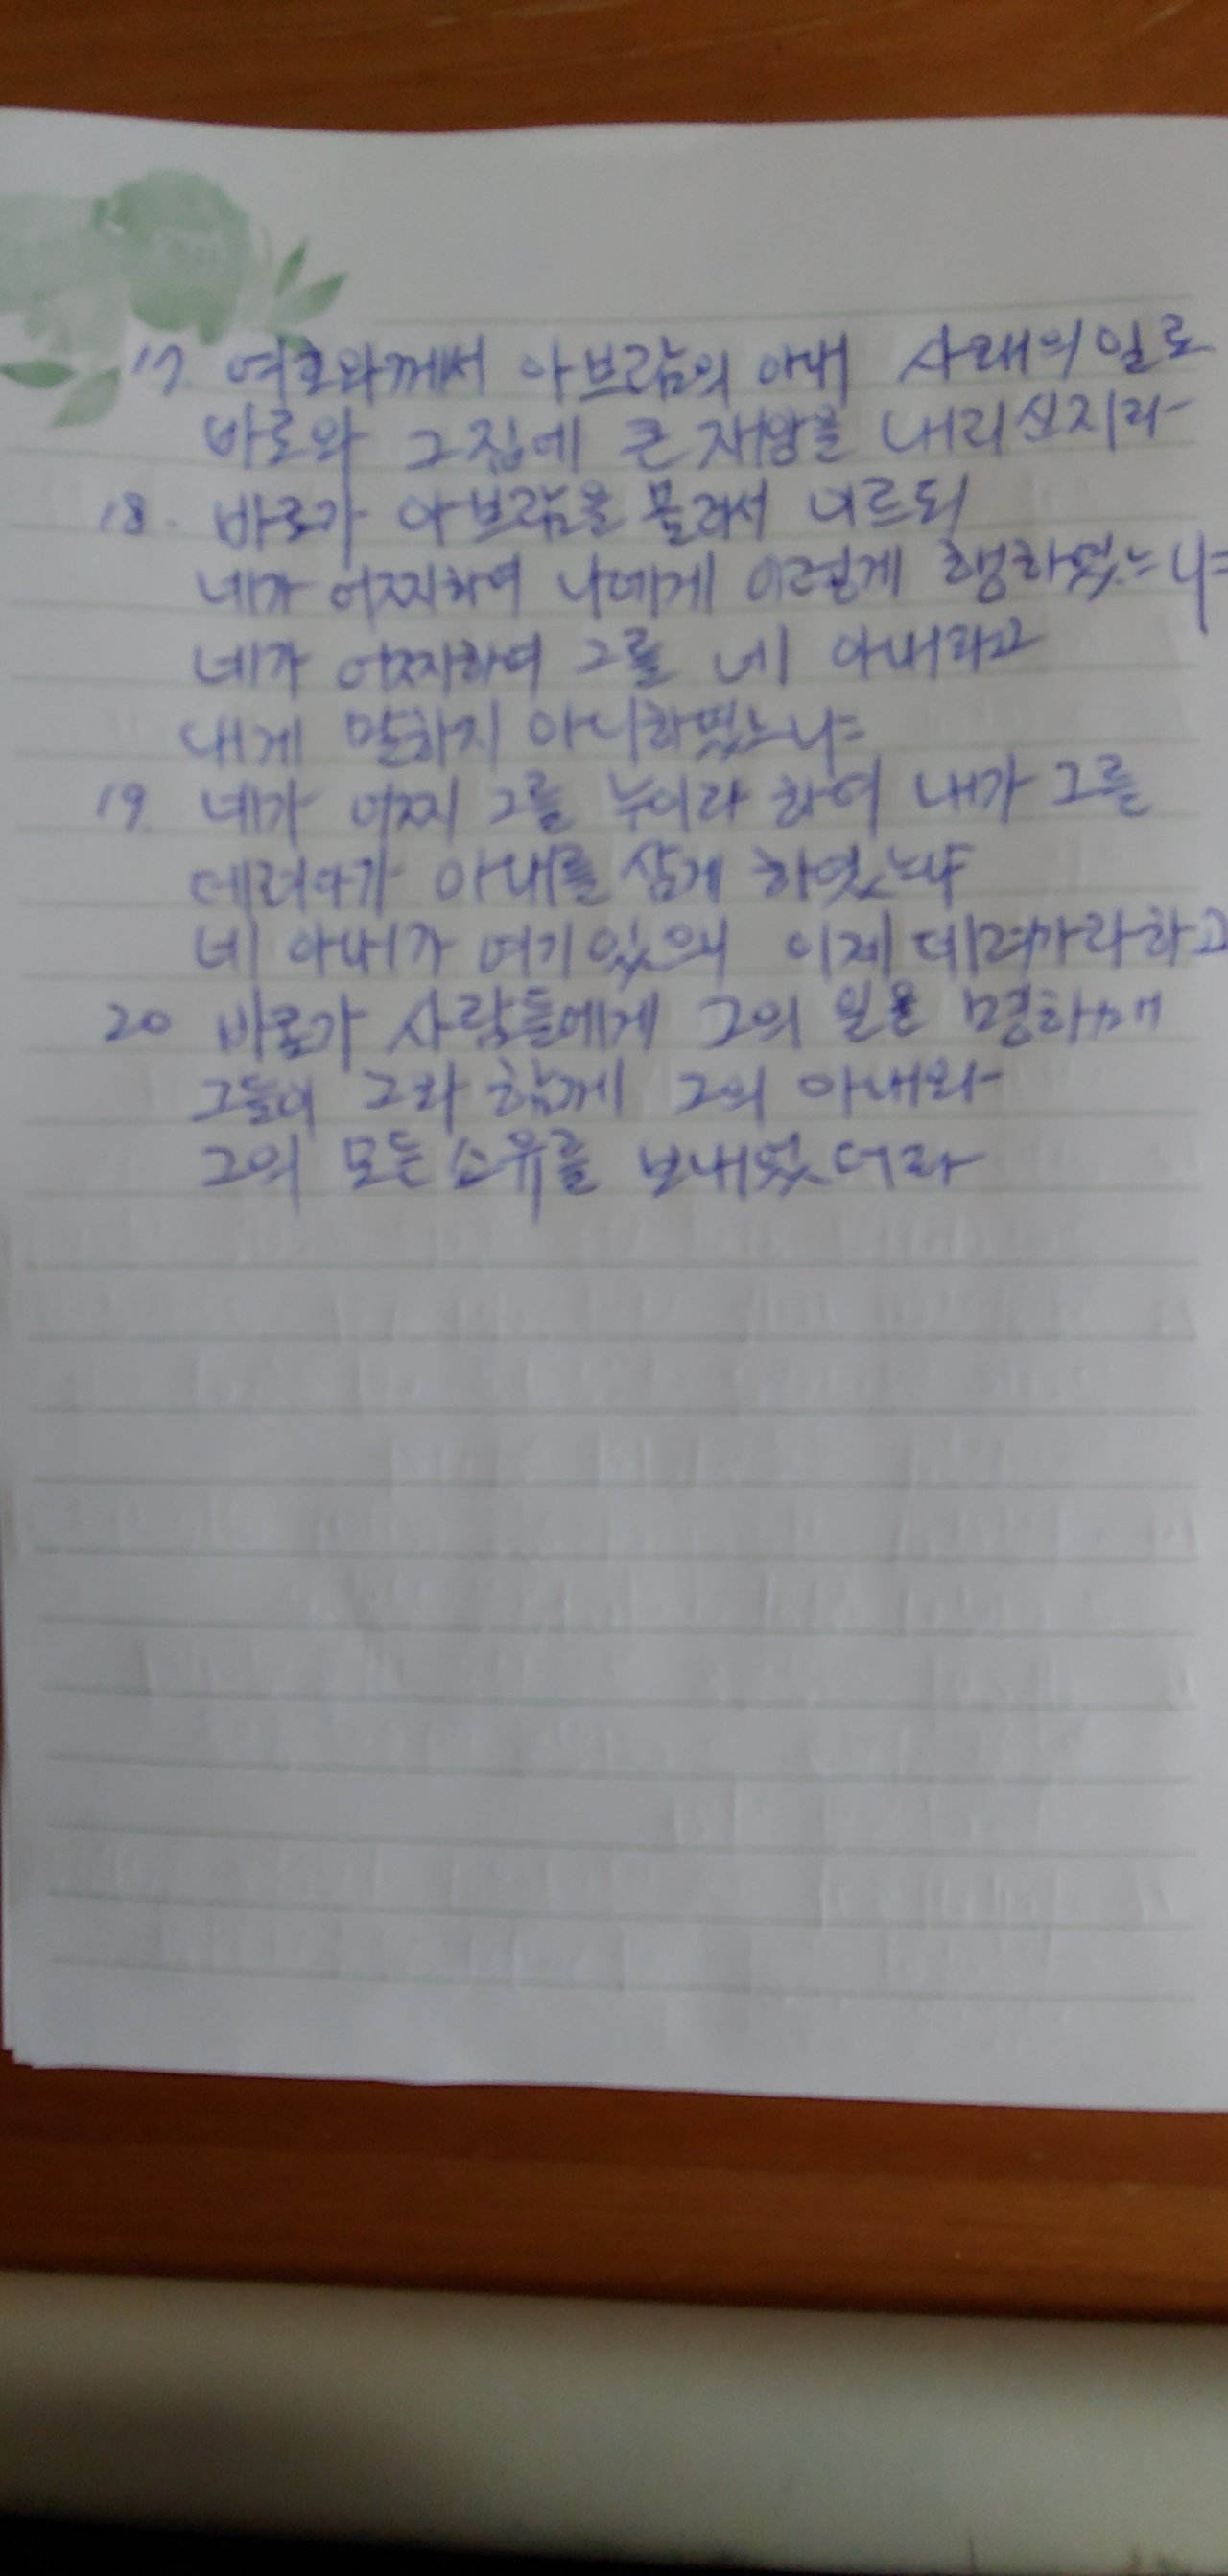 17. 여호와께서 아브람의 아내 사래의 일로
바로와 그 집에 큰 재앙을 내리신지라
18. 바로가 아브람을 불러서 이르되
네가 어찌하여 나에게 이렇게 행하였느냐
네가 어찌하여 그를 네 아내라고
내게 말하지 아니하였느냐
19. 네가 어찌 그를 누이라 하여 내가 그를
데려다가 아내를 삼게 하였느냐
네 아내가 여기 있으니 이제 데려가라 하고
20 바로가 사람들에게 그의 일을 명하매
그들이 그와 함께 그의 아내와
그의 모든 소유를 보내었더라